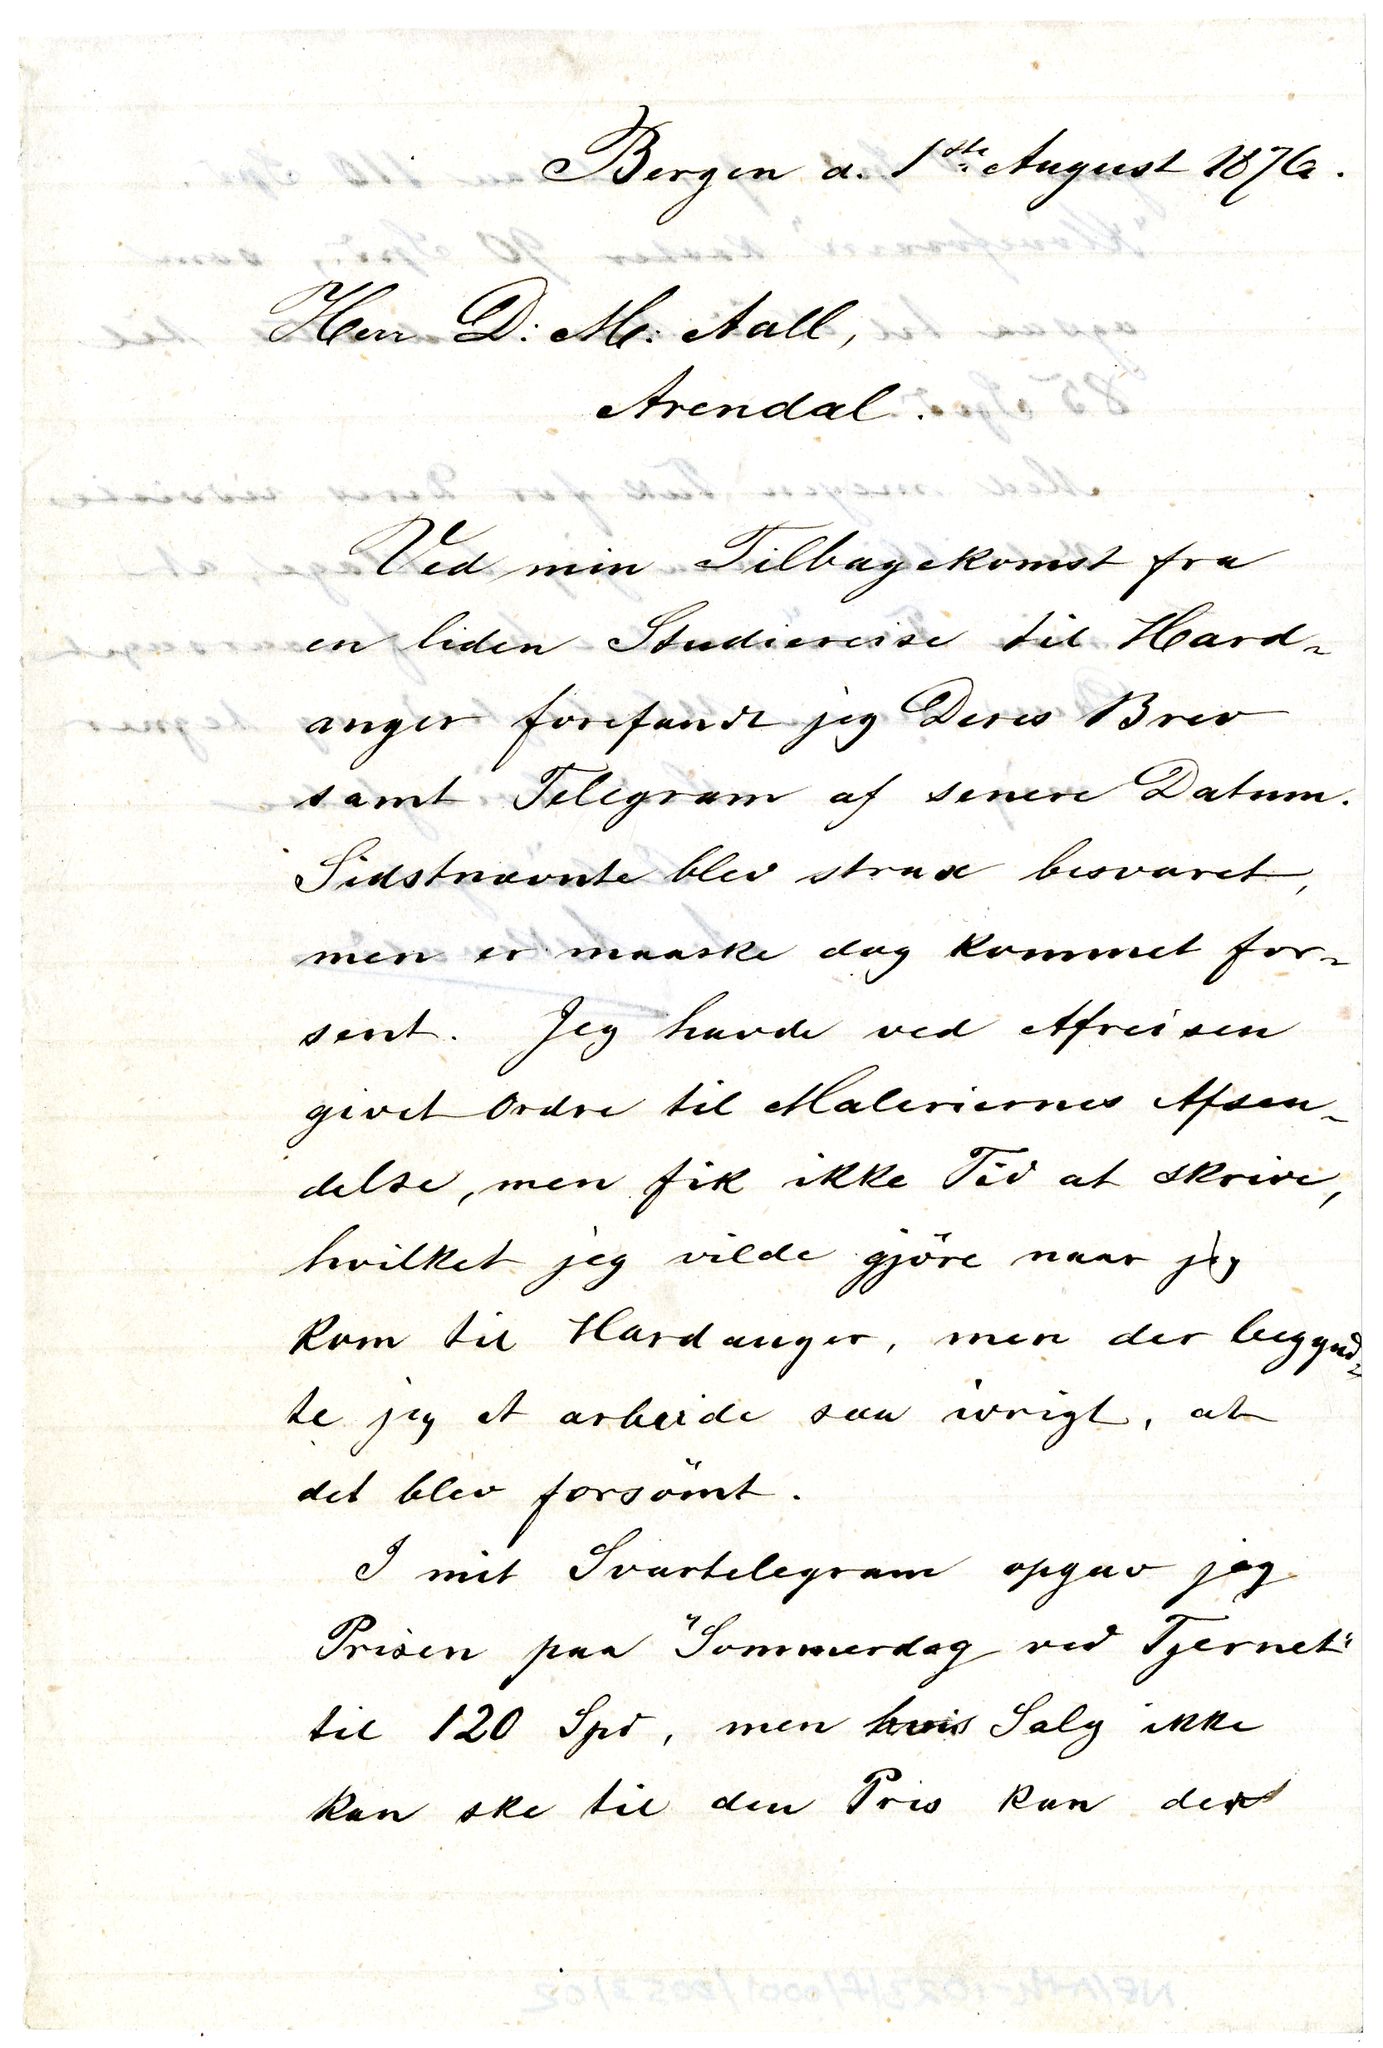 Bergen d. 1ste August 1876.
Herr D: M: Aall,
Arendal.
Ved min Tilbagekomst fra
en liden Studiereise til Hard-
anger forefandt jeg Deres Brev
samt Telegram af senere Datum.
Sidstnævnte blev strax besvaret,
men er maaske dog kommet for-
sent. Jeg havde ved Afreisen
givet Ordre til Maleriernes Afsen-
delse, men fik ikke Tid at skrive,
hvilket jeg vilde gjöre naar jeg
kom til Hardanger, men der begynd-
te jeg at arbeide saa ivrigt, at
det blev forsömt.
I mit Svartelegram opgav jeg
Prisen paa "Sommerdag ved Tjernet"
til 120 Spd, men hvis Salg ikke
kan ske til den Pris kan det